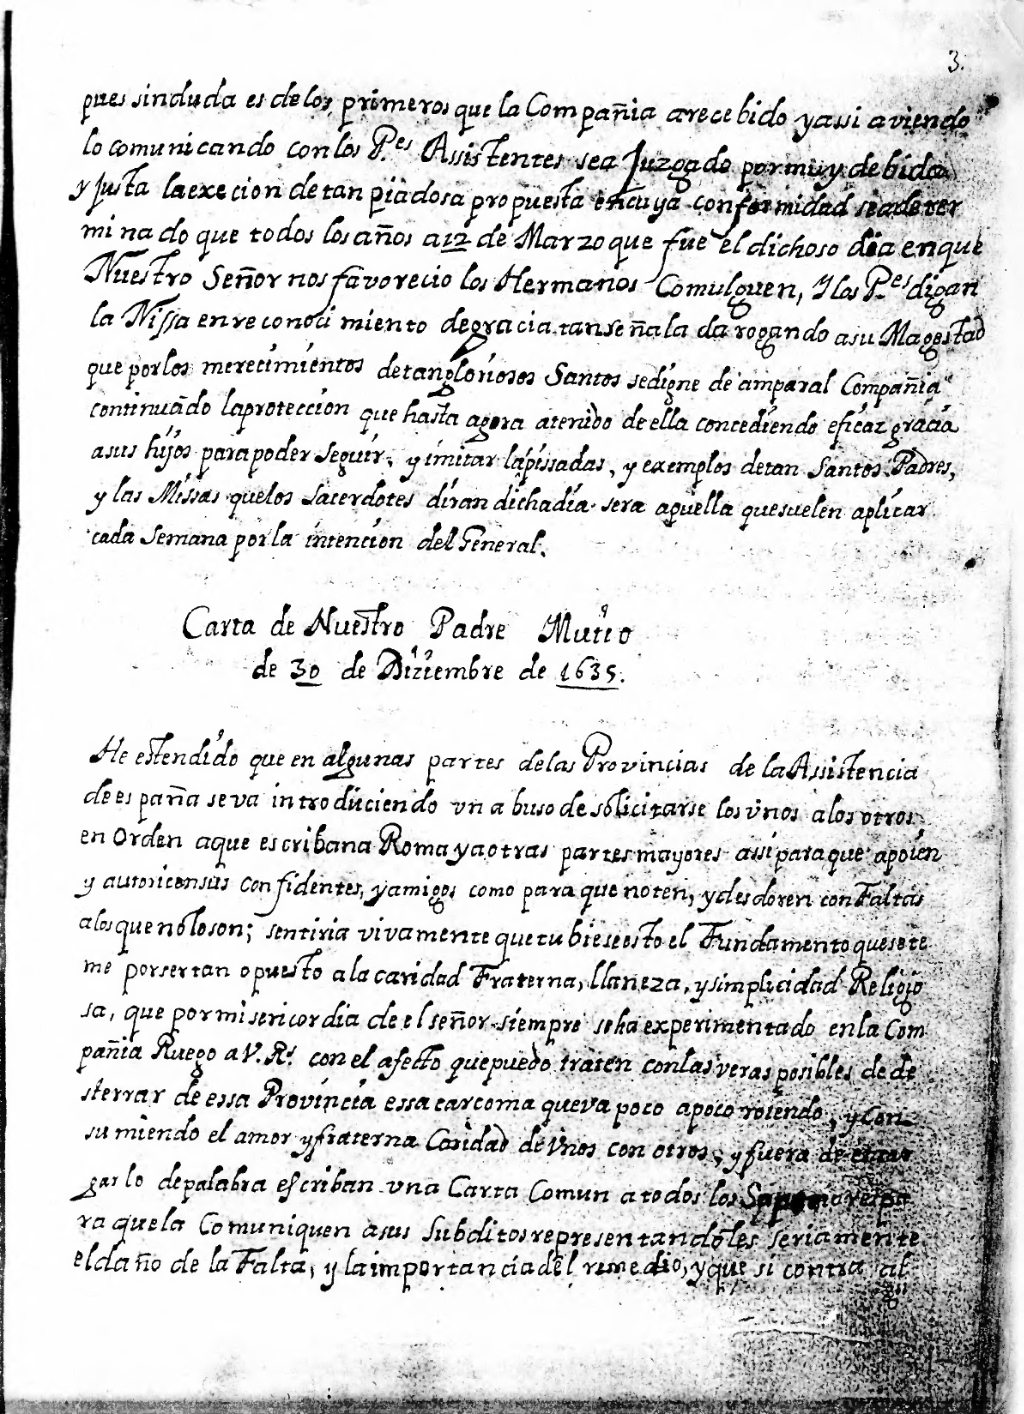 3.
pues sinduda es delos primeros que la Compañia a recebido y assi aviendo
lo comunicando con los P.es Assistentes sea Juzgado por muy debida
y justa la execion de tan piadosa propuesta en cuya conformidad seadeter
minado que todos los años a 12 de Marzo que fue el dichoso dia en que
Nuestro Señor nos favorecio los Hermanos Comulguen, y los P.es digan
la Missa en reconocimiento de gracia tan señalada rogando a su Magestad
que por los merecimientos de tan gloriosos Santos se digne de amparal Compañia
continuãdo la proteccion que hasta agora a tenido de ella concediendo eficaz gracia
a sus hijos para poder seguir, y imitar las pissadas, y exemplos de tan Santos Padres,
y las Missas que los sacerdotes diran dicha dia sera aquella que suelen aplicar
cada semana por la intencion del General.
Carta de Nuestro Padre Mutio
de 30 de Diziembre de 1635.
He estendido que en algunas partes de las Provincias de la Assistencia
de españa se va introduciendo vn abuso de solicitarse los vnos a los otros
en Orden a que escriban a Roma y a otras partes mayores assi para que apoien
y autoricen sus confidentes, y amigos como para que noten, y desdoren con Faltas
a los que no lo son; sentiria vivamente que tubiese esto el Fundamento que se te
me por ser tan opuesto a la caridad Fraterna, llaneza, y simplicidad Religio
sa, que por misericordia de el señor siempre se ha experimentado en la Com
pañia Ruego a V. R.s con el afecto que puedo traten con las veras posibles de de
sterrar de essa Provincia essa carcoma que va poco a poco roiendo, y con
sumiendo el amor y fraterna Caridad de vnos con otros; y fuera de encar
garlo de palabra escriban vna Carta Comun a todos los Superiores pa
ra que la Comuniquen a sus subditos representandoles seriamente
el daño de la Falta, y la importancia del remedio, y que si contra al
g